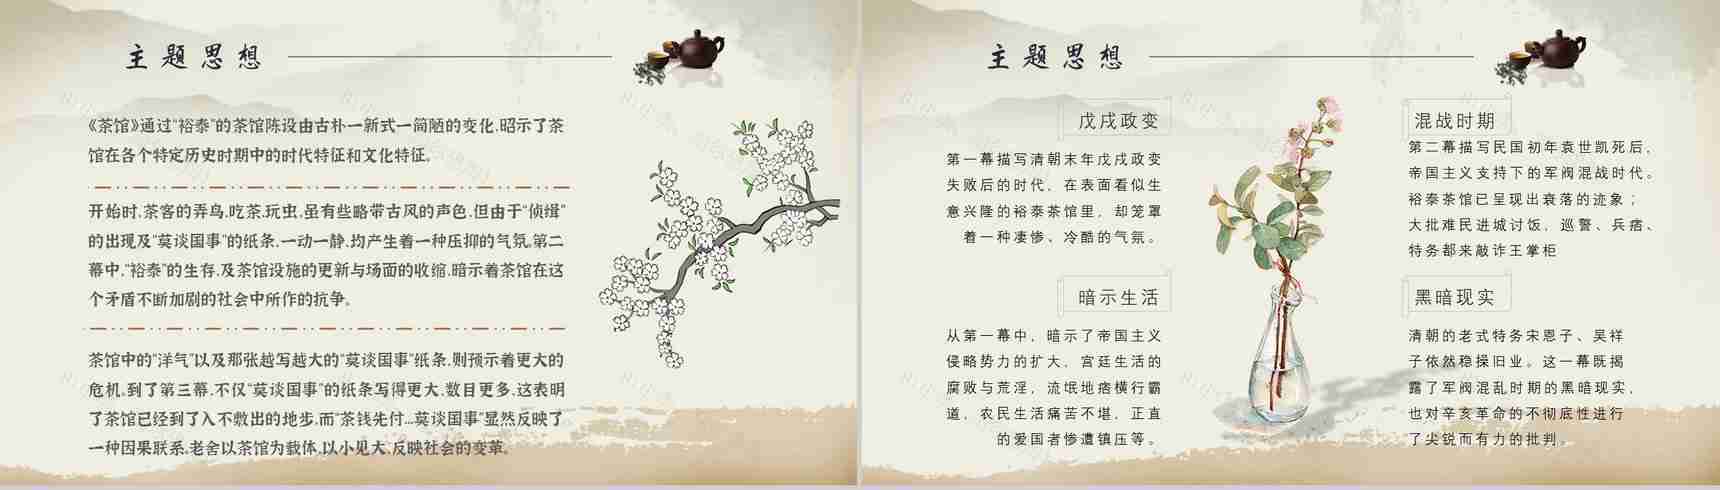 主题思想
《茶馆》通过“裕泰”的茶馆陈设由古朴—新式—简陋的变化,昭示了茶
馆在各个特定历史时期中的时代特征和文化特征。
开始时,茶客的弄鸟,吃茶,玩虫,虽有些略带古风的声色,但由于“侦缉”
的出现及“莫谈国事”的纸条,一动一静,均产生着一种压抑的气氛。第二
幕中,“裕泰”的生存,及茶馆设施的更新与场面的收缩,暗示着茶馆在这
个矛盾不断加剧的社会中所作的抗争。
茶馆中的“洋气”以及那张越写越大的“莫谈国事”纸条,则预示着更大的
危机。到了第三幕,不仅“莫谈国事”的纸条写得更大,数目更多,这表明
了茶馆已经到了入不敷出的地步,而“茶钱先付...莫谈国事”显然反映了
一种因果联系,老舍以茶馆为载体,以小见大,反映社会的变革。
主题思想
戊戌政变
第一幕描写清朝末年戊戌政变
失败后的时代，在表面看似生
意兴隆的裕泰茶馆里，却笼罩
着一种凄惨、冷酷的气氛。
暗示生活
从第一幕中，暗示了帝国主义
侵略势力的扩大，宫廷生活的
腐败与荒淫，流氓地痞横行霸
道，农民生活痛苦不堪，正直
的爱国者惨遭镇压等。
混战时期
第二幕描写民国初年袁世凯死后，
帝国主义支持下的军阀混战时代。
裕泰茶馆已呈现出衰落的迹象；
大批难民进城讨饭，巡警、兵痞、
特务都来敲诈王掌柜
黑暗现实
清朝的老式特务宋恩子、吴祥
子依然稳操旧业。这一幕既揭
露了军阀混乱时期的黑暗现实，
也对辛亥革命的不彻底性进行
了尖锐而有力的批判。